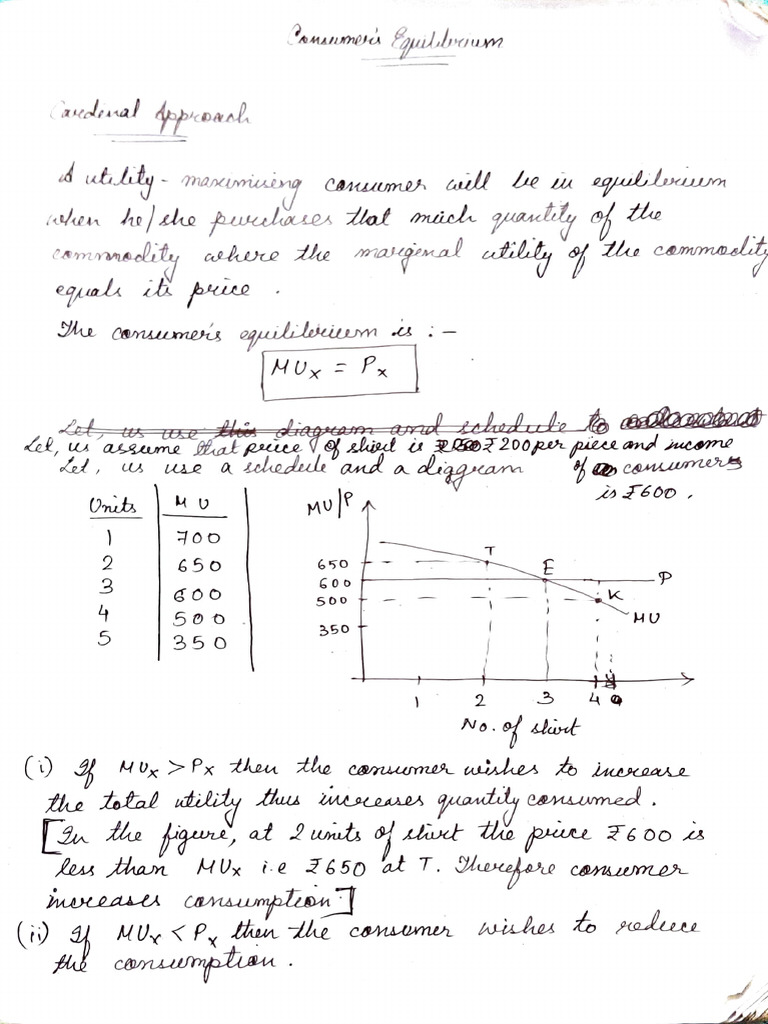 Consumer's Equilibrium
Cardinal Approach
A utility-maximising consumer will be in equilibrium
when he/she purchases that much quantity of the
commodity where the marginal utility of the commodity
equals its price.
The consumer's equilibrium is :-
MUx = Px
Let, us use this diagram and schedule to
Let, us assume that price of shirt is ₹200 per piece and income
Let, us use a schedule and a diagram of consumers
is ₹600.
Units MU
1 700
2 650
3 600
4 500
5 350
MU/P
650
600
500
350
T
E
P
K
MU
1 2 3 4
No. of shirt
(i) If MUx > Px then the consumer wishes to increase
the total utility thus increases quantity consumed.
[In the figure, at 2 units of shirt the price ₹600 is
less than MUx i.e ₹650 at T. Therefore consumer
increases consumption.]
(ii) If MUx < Px then the consumer wishes to reduce
the consumption.